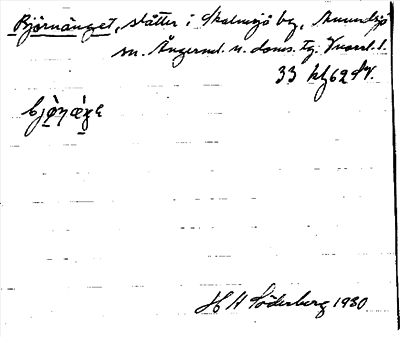 Björnänget, slåtter i Skalmsjö by, Anundsjö
sn. Ångerml. n. doms. tg.
33 kl 62 str.
bjǿŋæŋe
H H Söderberg 1930